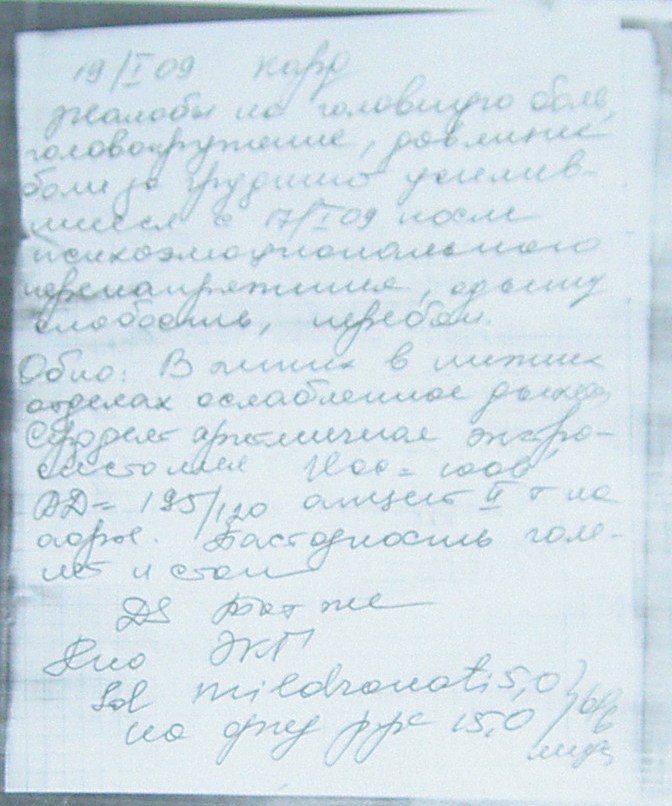 19/I 09 кард
Жалобы на головную боль,
головокружение, давлиние
боли за грудиной усилив-
шиеся с 17/I 09 после
психоэмоционального
перенапряжения, одышку
слабость, перебои.
Обно: В легких в нижних
отделах ослабленное дыхан
Сердце аритмичная экстро-
систолия ЧСС = 100 в'
АД = 195/120 акцент II т на
аорте. Пастозность голе-
ней и стоп
DS Тот же
Реко ЭКГ
Sol mildronati 5,0
на физ р-ре 15,0 } в/в